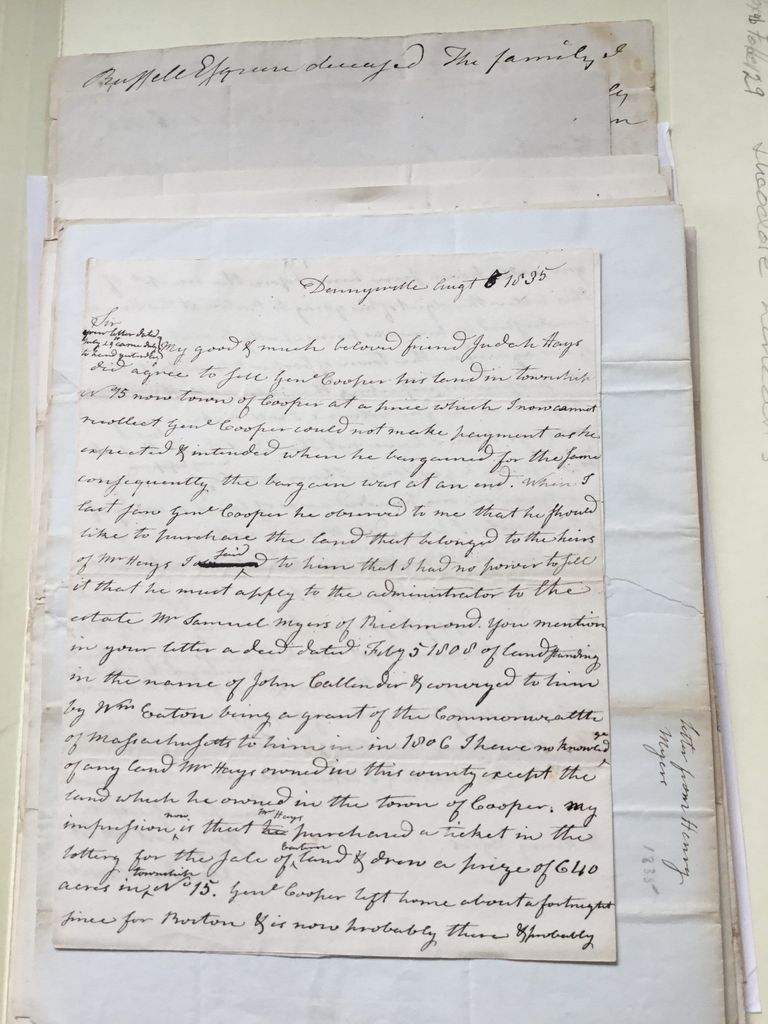 Russell Esquire deceased The family
Dennysville Augt 5 1835
Sir
your letter dated
July 29th came duly
to hand yesterday
My good & much beloved friend Judah Hays
did agree to sell Genl Cooper his land in township
No 15 now town of Cooper at a price which I now cannot
recollect Genl Cooper could not make payment as he
expected & intended when he bargained for the same
consequently the bargain was at an end. When I
last saw Genl Cooper he observed to me that he should
like to purchase the land that belonged to the heirs
of Mr Hays I said to him that I had no power to sell
it that he must apply to the administrator to the
estate Mr Samuel Myers of Richmond. You mention
in your letter a deed dated Feby 5 1808 of land standing
in the name of John Callender & conveyed to him
by Wm Eaton being a grant of the Commonwealth
of Massachusetts to him in in 1806 I have no knowledge
of any land Mr Hays owned in this county except the
land which he owned in the town of Cooper. my
impression now is that he Mr Hays purchased a ticket in the
lottery for the sale of Eastern land & drew a prize of 640
acres in township No 15. Genl Cooper left home about a fortnight
since for Boston & is now probably there & probably
letter from Henry
Myers
1835